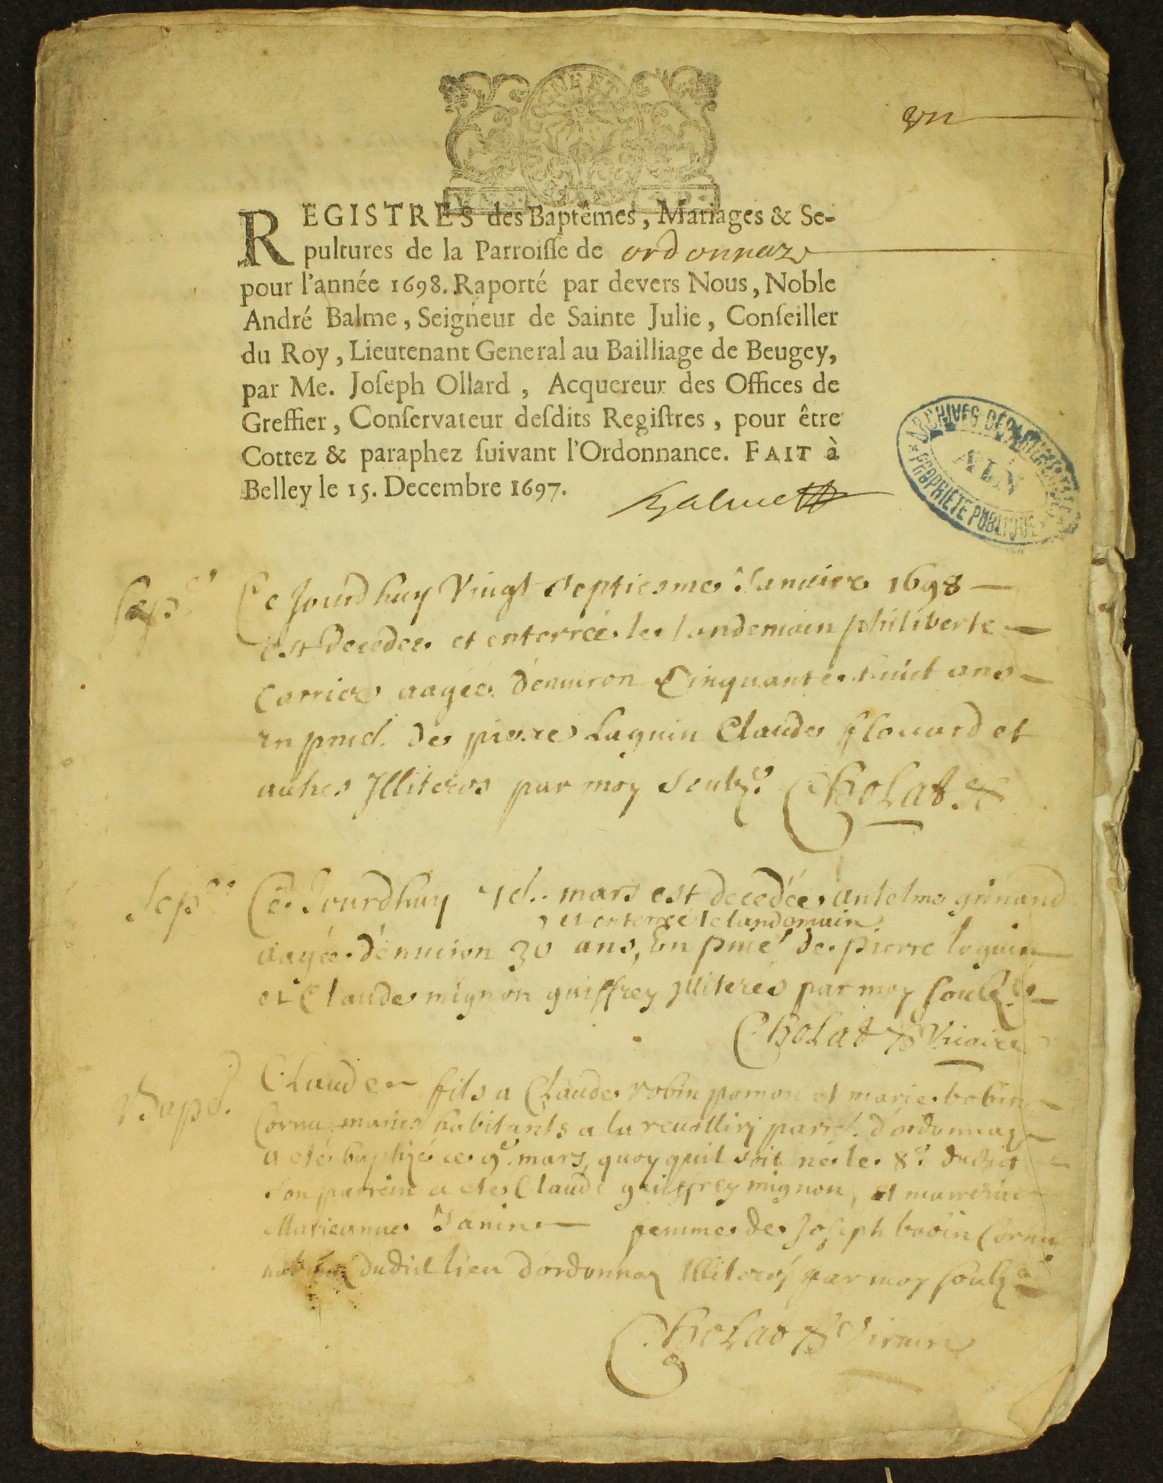 un
REGISTRES des Baptêmes, Mariages & Se-
pultures de la Parroisse de ordonnaz
pour l'année 1698. Raporté par devers Nous, Noble
André Balme, Seigneur de Sainte Julie, Conseiller
du Roy, Lieutenant General au Bailliage de Beugey,
par Me. Joseph Ollard, Acquereur des Offices de
Greffier, Conservateur desdits Registres, pour être
Cottez & paraphez suivant l'Ordonnance. FAIT à
Belley le 15. Decembre 1697.
Balme
ARCHIVES DÉPARTEMENTALES
AIN
PROPRIÉTÉ PUBLIQUE
Ce Jourdhuy Vingt septiesme Januier 1698
est decedee et enterrée le landemain philiberte
Carrier aagée d'enuiron Cinquante huit ans
en pnce. de pierre Laguin Claude et
autres Illiteres par moy soubz.né Cholat
Sep.re Ce Jourdhuy mars est decedée antelme grinand
et enterrée le landemain
aagée d'enuiron 30 ans, En pnce. de pierre laguin
et Claude mignon guiffrey Illiterés par moy soubz.né
Cholat Vicaire
Bapt. Claude fils a Claude robin et marie bobin
Cornu maries habitants a la paroi. d'ordonnaz
a eté baptizé ce 9e. mars, quoy quil soit né le 8e. dudit
son parrein a eté Claude guiffrey mignon, et marreine
Janin femme de Joseph bobin Cornu
dudit lieu d'ordonnaz Illiterés par moy soubz.né
Cholat Vicaire